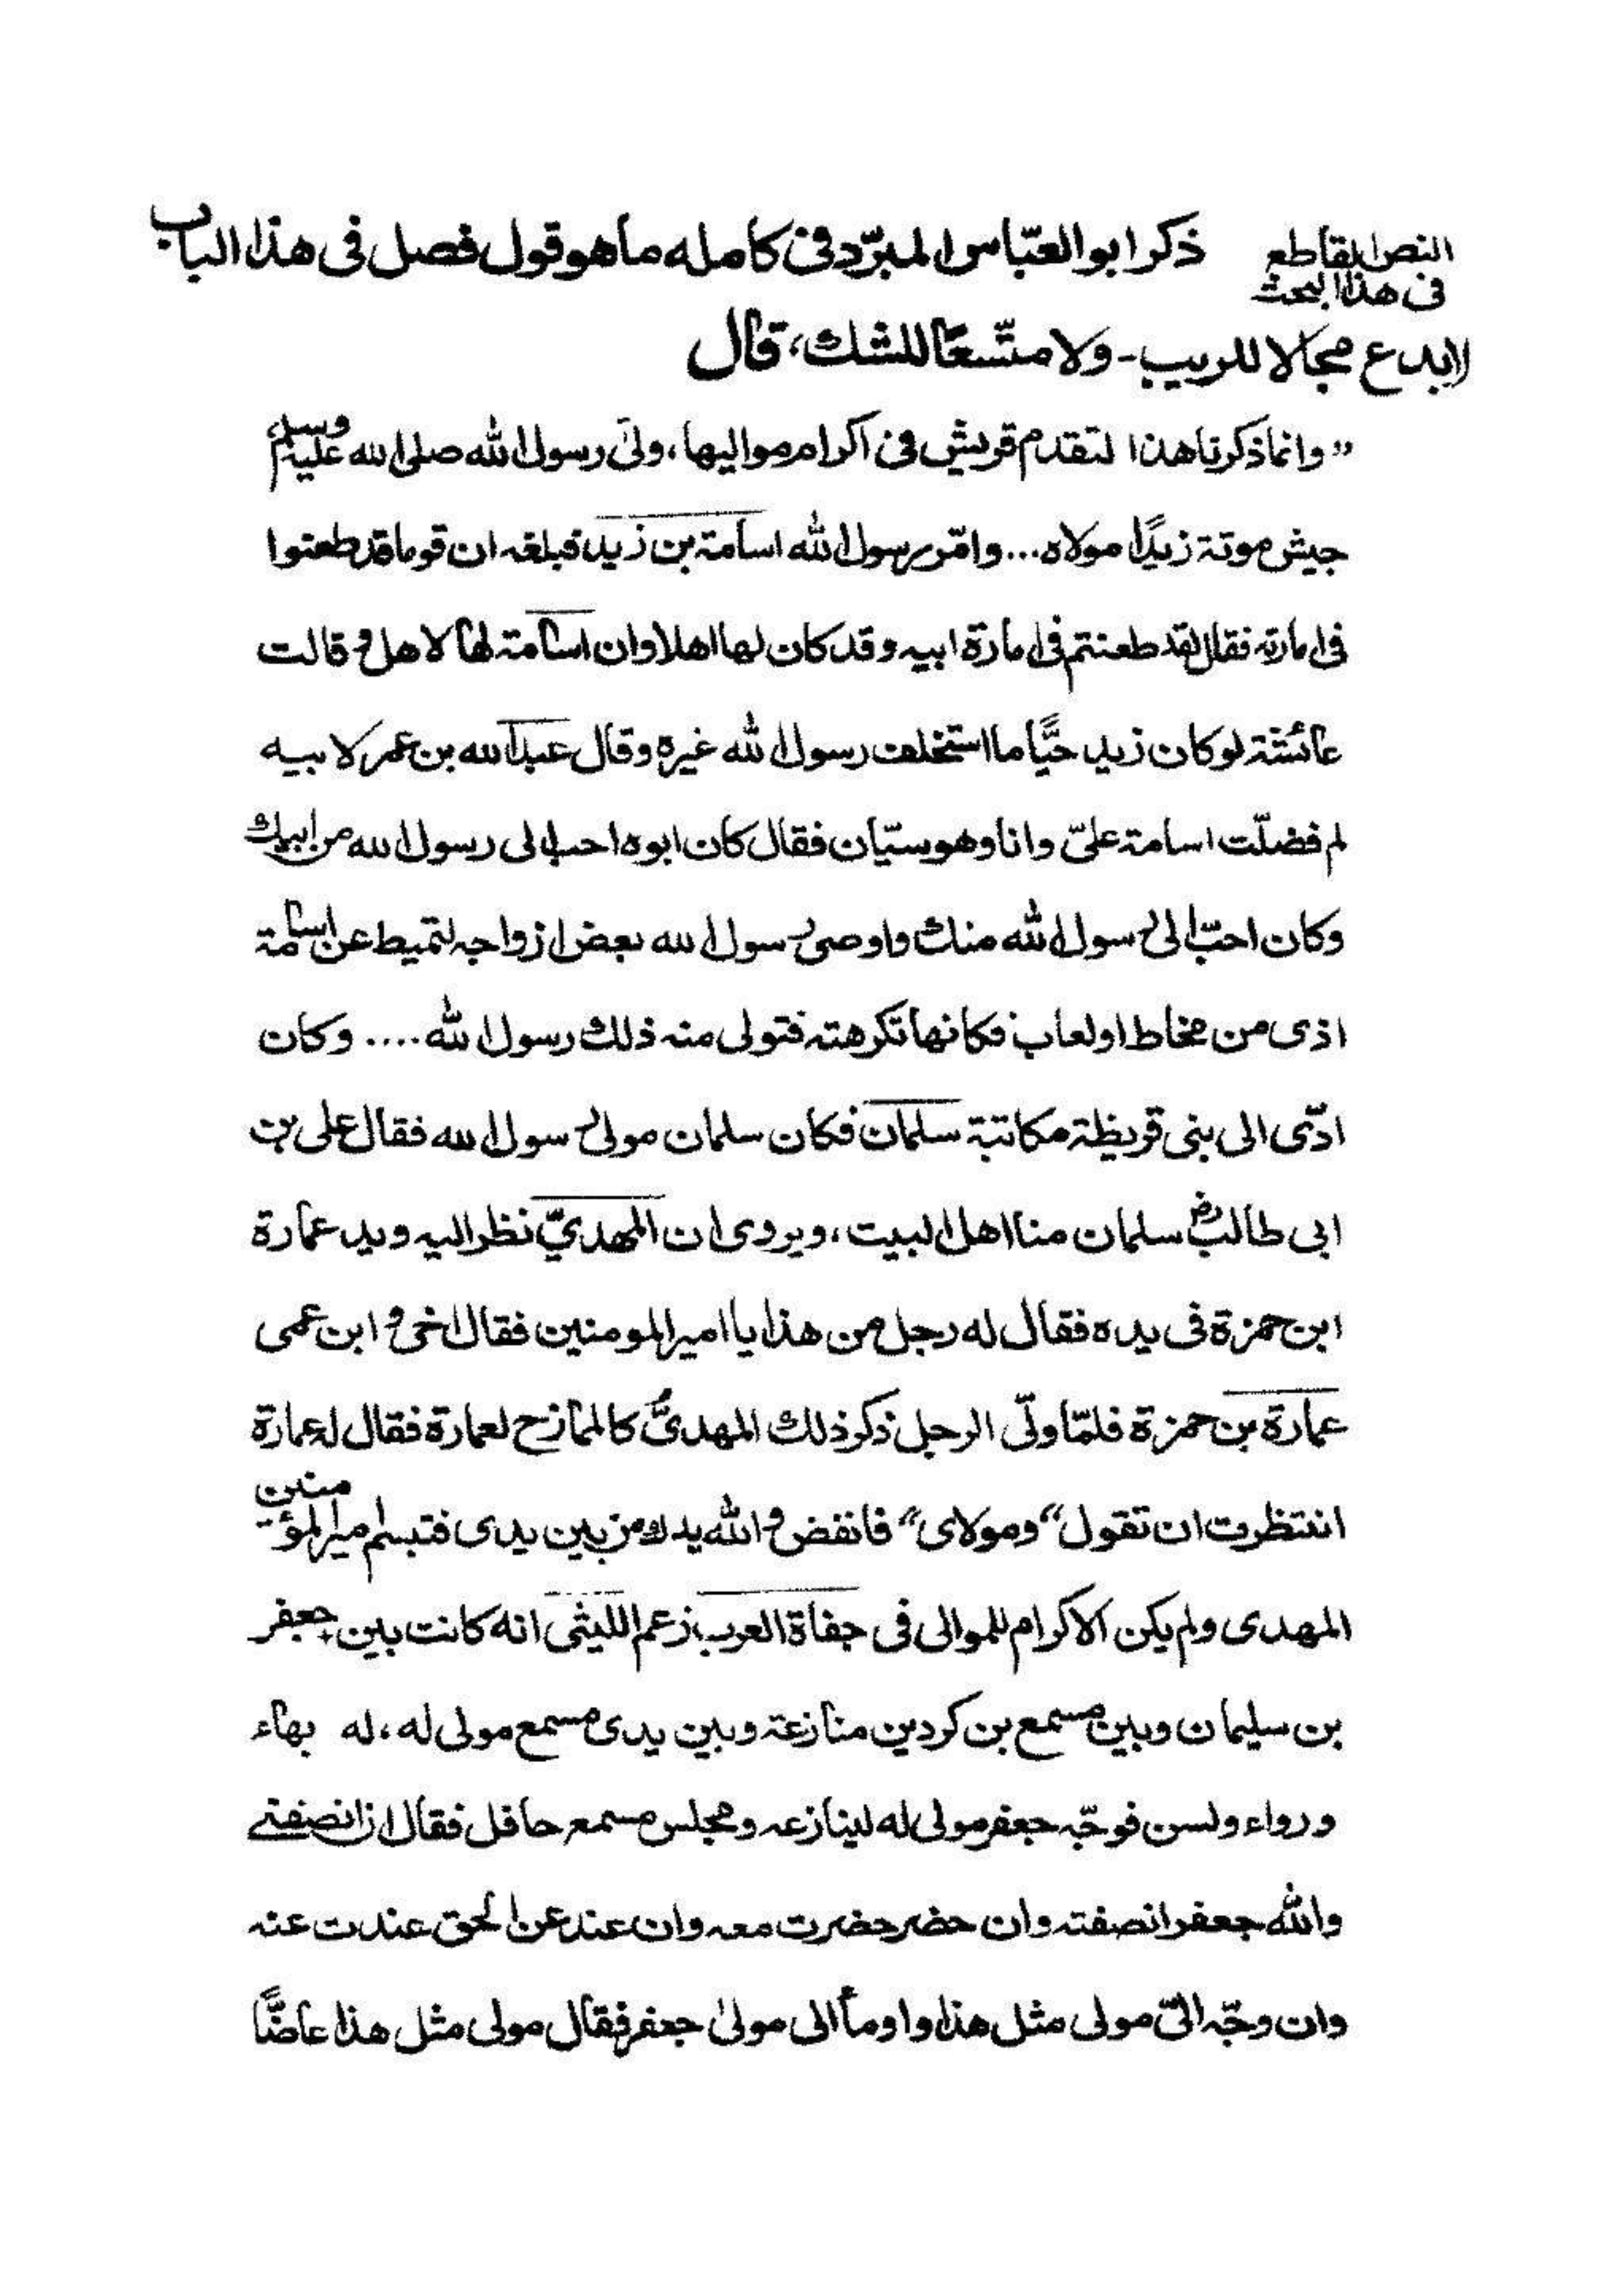 النص القاطع
فى هذا البحث
ذكر ابو العبّاس المبرّد فى كامله ما هو قول فصل فى هذا الباب
لا يدع مجالا للريب - ولا متّسعًا للشك، قال
”وانما ذكرنا هذا لتقدم قريش فى اكرام مواليها، ولّى رسول الله صلى الله عليه وسلم
جيش موتة زيدًا مولاه... وامّر رسول الله اسامة بن زيد فبلغه ان قوما قد طعنوا
فى امارته فقال لقد طعنتم فى امارة ابيه وقد كان لها اهلا وان اسامة لها لاهل وقالت
عائشة لو كان زيد حيًّا ما استخلف رسول الله غيره وقال عبد الله بن عمر لابيه
لم فضلّت اسامة علىّ وانا وهو سيّان فقال كان ابوه احب الى رسول الله من ابيك
وكان احبّ الى رسول الله منك واوصى رسول الله بعض ازواجه لتميط عن اسامة
اذى من مخاط او لعاب فكانها تكرهته فتولى منه ذلك رسول الله .... وكان
ادّى الى بنى قريظة مكاتبة سلمان فكان سلمان مولى رسول الله فقال على بن
ابى طالب رض سلمان منا اهل البيت، ويروى ان المهديّ نظر اليه ويد عمارة
ابن حمزة فى يده فقال له رجل من هذا يا امير المومنين فقال اخى و ابن عمى
عمارة بن حمزة فلمّا ولّى الرجل ذكر ذلك المهدىُّ كالممازح لعمارة فقال له عمارة
انتظرت ان تقول “ومولاى” فانفض والله يدك من بين يدى فتبسم امير المؤمنين
المهدى ولم يكن الاكرام للموالى فى جفاة العرب، زعم الليثى انه كانت بين جعفر
بن سليمان وبين مسمع بن كردين منازعة وبين يدى مسمع مولى له، له بهاء
ورواء ولسن فوجّه جعفر مولى له لينازعه ومجلس مسمع حافل فقال ان انصفنى
والله جعفر انصفته وان حضر حضرت معه وان عند عن الحق عندت عنه
وان وجّه الىّ مولى مثل هذا واومأ الى مولىٰ جعفر فقال مولى مثل هذا عاضًّا